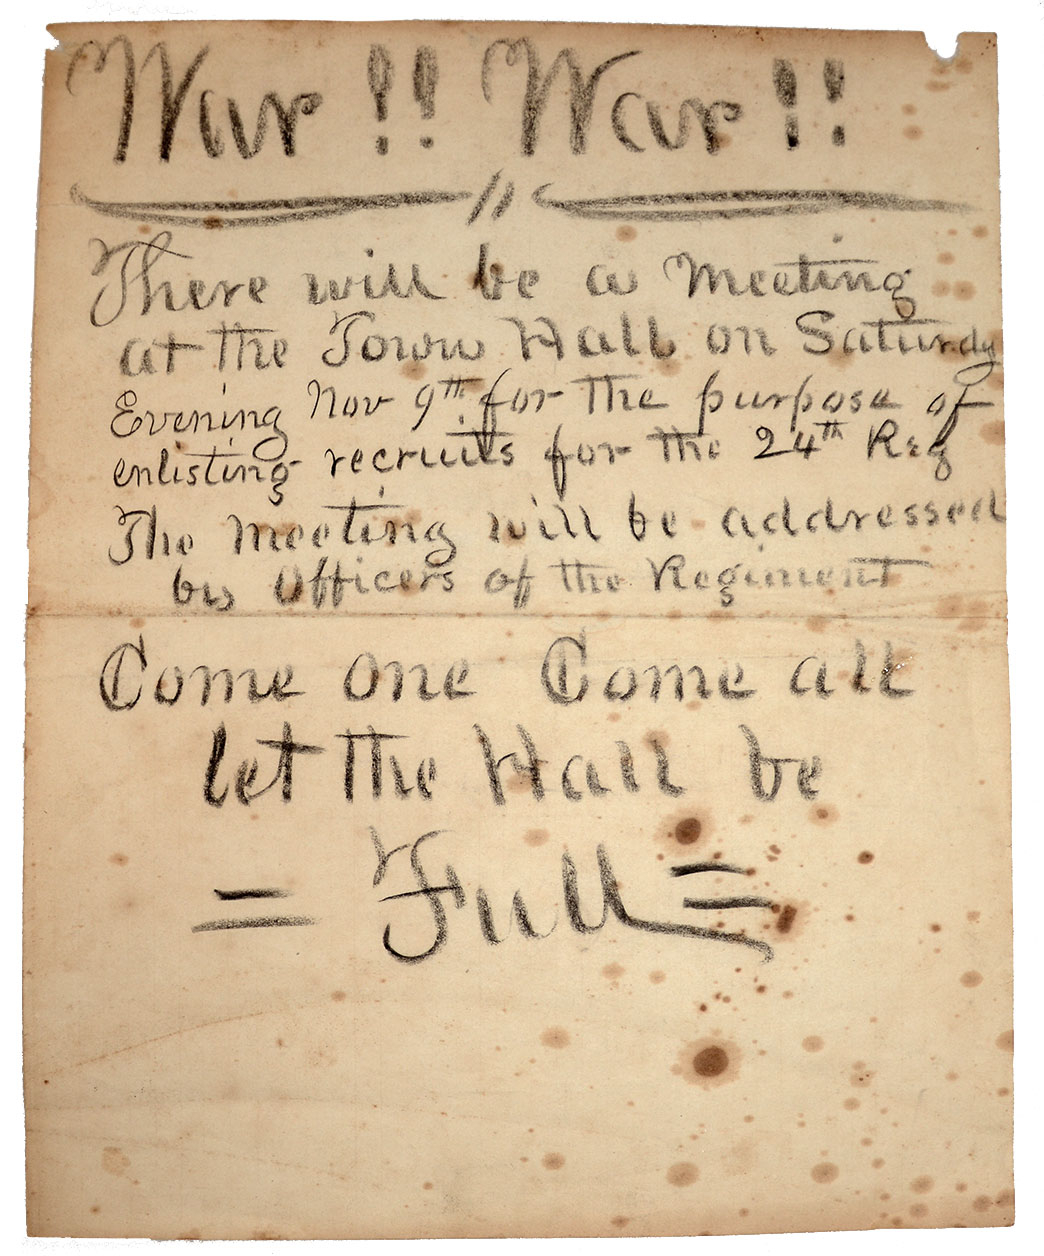 War !! War !!
There will be a Meeting
at the Town Hall on Saturdy
Evening Nov 9th for the purpose of
enlisting recruits for the 24th Reg
The Meeting will be addressed
by Officers of the Regiment
Come one Come all
let the Hall be
= Full =